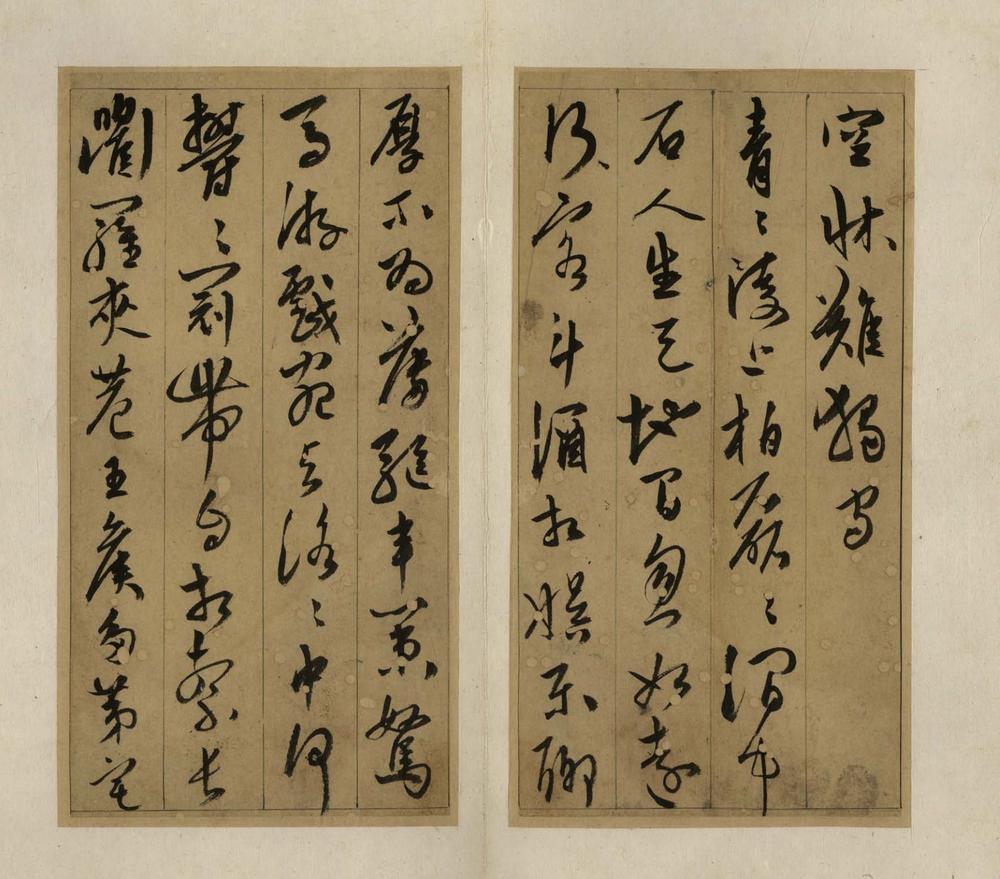 空牀難獨守
青〻陵上柏磊〻澗中
石人生天地間忽如遠
行客斗酒相娛樂聊
厚不為薄驅車策駑
馬游戲宛与洛〻中何
鬱〻冠帶自相索長
衢羅夾巷王侯多第宅